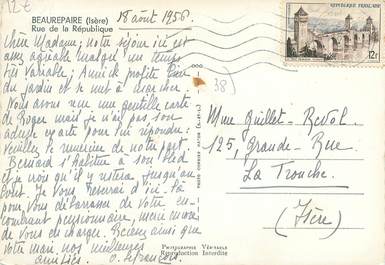 12€
BEAUREPAIRE (Isère)
Rue de la République
18 août 1956.
38
RÉPUBLIQUE FRANÇAISE
12F
Chère Madame; notre séjour ici est
assez agréable malgré un temps
très variable; Annick profite bien
du jardin et se met à marcher.
Nous avons reçu une gentille carte
de Roger mais je n'ai pas son
adresse exacte pour lui répondre;
veuillez le remercier de notre part.
Bernard s'habitue à son
et je crois qu'il y restera jusqu'au
Je vous d'ici-là
pour vous débarrasser de votre en-
combrant pensionnaire, merci encore
de vous en charger. Recevez ainsi que
votre mari, nos meilleures
amitiés.
Mme Guillet-Revol
125, Grande-Rue
La Tronche.
(Isère)
PHOTOGRAPHIE VÉRITABLE
Reproduction Interdite